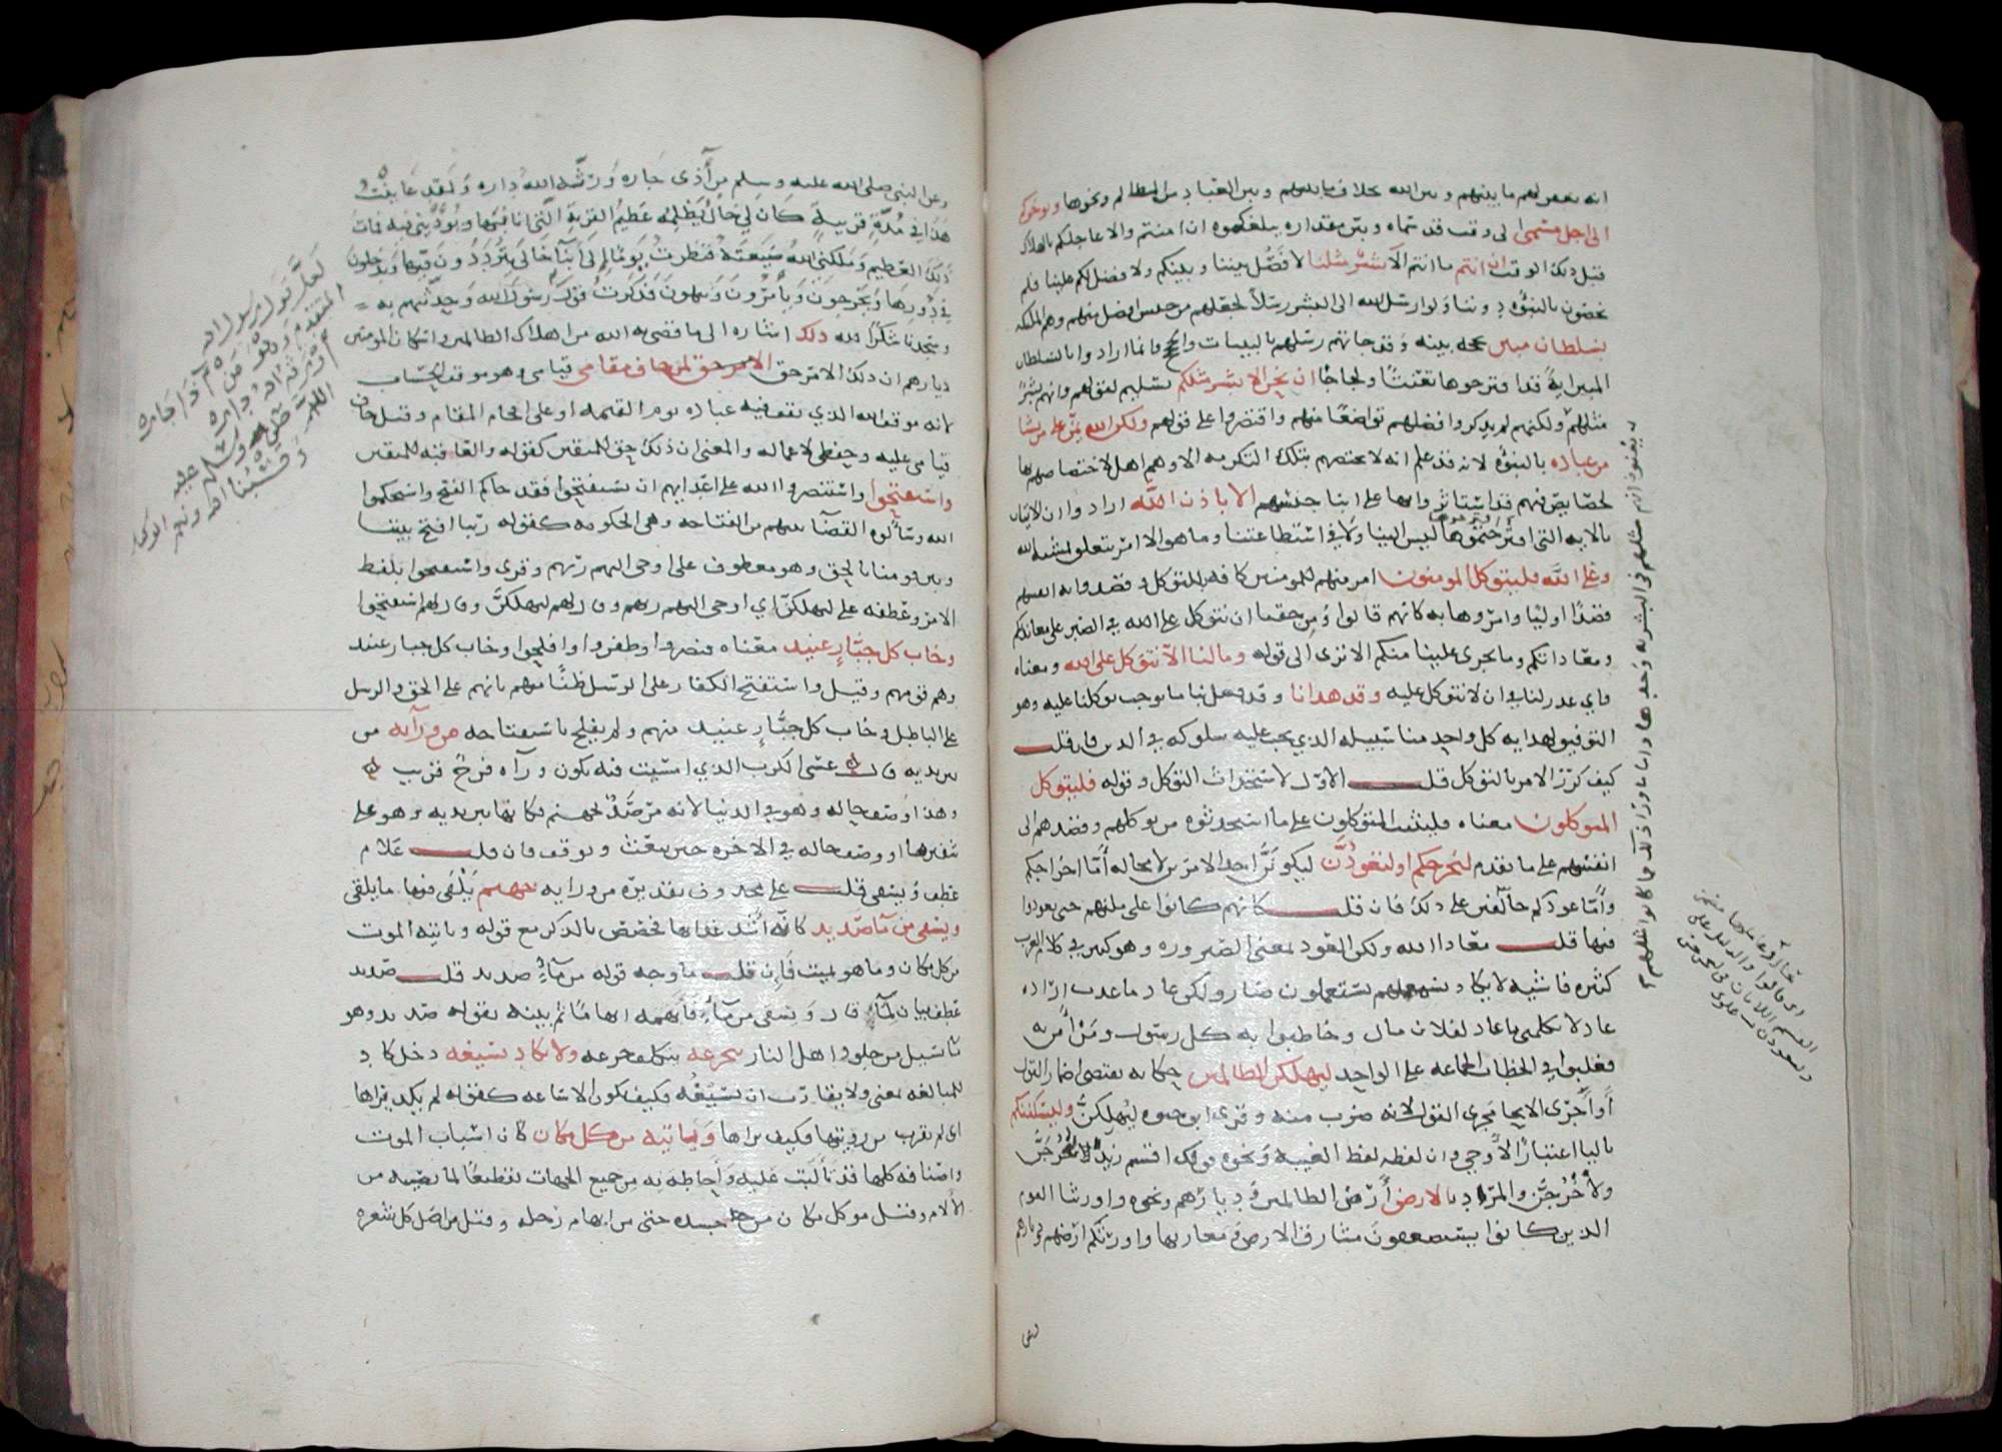 انه يغفر لهم ما بينهم وبين الله بخلاف ما بينهم وبين العباد من المظالم ونحوها ويوخركم
الى اجل مسمى الى وقت قد سماه وبين مقداره يبلغكموه ان امنتم والا عاجلكم بالهلاك
قبل ذلك الوقت ان انتم ما انتم الا بشر مثلنا لا فضل بيننا وبينكم ولا فضل لكم علينا فلم
تخصون بالنبوة دوننا ولو ارسل الله الى البشر رسلا لجعلهم من جنس افضل منهم وهم الملئكة
بسلطان مبين بحجة بينة وقد جاتهم رسلهم بالبينات والحجج وانما ارادوا بالسلطان
المبين اية قد اقترحوها تعنتا ولجاجا ان نحن الا بشر مثلكم تسليم لقولهم وانهم بشر
مثلهم ولكنهم لم يذكروا فضلهم تواضعا منهم واقتصروا على قولهم ولكن الله يمن على من يشا
من عباده بالنبوة لانه قد علم انه لا يختصهم بتلك الكرمة الا وهم اهل لاختصاصهم بها
لخصايص فيهم قد استاثروا بها على ابنا جنسهم الا باذن الله ارادوا ان الاتيان
بالاية التي اقترحتموها ليس الينا ولا في استطاعتنا وما هو الا امر يتعلق بمشية الله
وعلى الله فليتوكل المومنون امر منهم للمومنين كافة بالتوكل وقصدوا به انفسهم
قصدا اوليا وامروها به كانهم قالوا ومن حقنا ان نتوكل على الله في الصبر على معاندتكم
ومعاداتكم وما يجري علينا منكم الا ترى الى قوله وما لنا الا نتوكل على الله ومعناه
واي عذر لنا في ان لا نتوكل عليه وقد هدانا وقد فعل بنا ما يوجب توكلنا عليه وهو
التوفيق لهداية كل واحد منا سبيله الذي يجب عليه سلوكه في الدين فان قلت
كيف كرر الامر بالتوكل قلت الاول لاستحداث التوكل وقوله فليتوكل
المتوكلون معناه فليثبت المتوكلون على ما استحدثوه من توكلهم وقصدهم الى
انفسهم على ما تقدم لنخرجنكم او لتعودن ليكونن احد الامرين لا محالة اما اخراجكم
واما عودكم حالفين على ذلك فان قلت كانهم كانوا على ملتهم حتى يعودوا
فيها قلت معاذ الله ولكن العود بمعنى الصيرورة وهو كثير في كلام العرب
كثرة فاشية لا يكاد تسمعهم يستعملون صار ولكن عاد ما عدت اراه
عاد لا يكلمني ما عاد لفلان مال وخاطبوا به كل رسول ومن امن به
فغلبوا في الخطاب الجماعة على الواحد ليهلكن الظالمين حكاية تقتضي اضمار القول
او اجرى الايحا مجرى القول لانه ضرب منه وقرى ابو حيوة ليهلكن وليسكننكم
باليا اعتبارا لاوحى وان لفظه لفظ الغيبة ونحوه قولك اقسم زيد ليخرجن
ولاخرجن والمراد بالارض ارض الظالمين وديارهم ونحوه واورثنا القوم
الذين كانوا يستضعفون مشارق الارض ومغاربها واورثكم ارضهم وديارهم
وعن
وعن النبي صلى الله عليه وسلم من آذى جاره ورثه الله داره ولقد عاينت
هذا في مدة قريبة كان لي خال يظلمه عظيم القرية التي انا منها ويوذيني فيه فمات
ذلك العظيم وملكني الله ضيعته فنظرت يوما الى ابنا خالي يترددون فيها ويدخلون
في دورها ويخرجون ويامرون وينهون فذكرت قول رسول الله وحدثتهم به
وسجدنا شكرا لله ذلك اشارة الى ما قضى به الله من اهلاك الظالمين واسكان المومنين
ديارهم ان ذلك الامر حق الامر حق لمن خاف مقامي قيامي وهو موقف الحساب
لانه موقف الله الذي يقف فيه عباده يوم القيمة او على اقحام المقام وقيل خاف
قيامي عليه وحفظي لاعماله والمعنى ان ذلك حق للمتقين كقوله والعاقبة للمتقين
واستفتحوا واستنصروا الله على اعدايهم ان تستفتحوا فقد جاكم الفتح واستحكموا
الله وسالوه القضا بينهم من الفتاحة وهي الحكومة كقوله ربنا افتح بيننا
وبين قومنا بالحق وهو معطوف على اوحى اليهم ربهم وقرى واستفتحوا بلفظ
الامر وعطفه على ليهلكن اي اوحى اليهم ربهم وقال لهم ليهلكن وقال لهم استفتحوا
وخاب كل جبار عنيد معناه فنصروا وظفروا وافلحوا وخاب كل جبار عنيد
وهم قومهم وقيل واستفتح الكفار على الرسل ظنا منهم بانهم على الحق والرسل
على الباطل وخاب كل جبار عنيد منهم ولم يفلح باستفتاحه من ورآيه من
بين يديه قال عسى الكرب الذي امسيت فيه يكون ورآه فرج قريب
وهذا وصف حاله وهو في الدنيا لانه مرصد لجهنم فكانها بين يديه وهو على
شفيرها او وصف حاله في الاخرة حين يبعث ويوقف فان قلت علام
عطف ويسقى قلت على محذوف تقديره من ورايه جهنم يلقى فيها ما يلقى
ويسقى من مآ صديد كانه اشد عذابها فخصص بالذكر مع قوله وياتيه الموت
من كل مكان وما هو بميت فان قلت ما وجه قوله من مآ صديد قلت صديد
عطف بيان لمآ قال ويسقى من مآ فابهمه ابهاما ثم بينه بقوله صديد وهو
ما يسيل من جلود اهل النار يتجرعه يتكلف جرعه ولا يكاد يسيغه دخل كاد
للمبالغة يعني ولا يقارب ان يسيغه فكيف تكون الاساغة كقوله لم يكد يراها
اي لم يقرب من رويتها فكيف يراها وياتيه من كل مكان كان اسباب الموت
واصنافه كلها قد تالبت عليه واحاطت به من جميع الجهات تفظيعا لما يصيبه من
الالام وقيل من كل مكان من جسده حتى من ابهام رجله وقيل من اصل كل شعرة